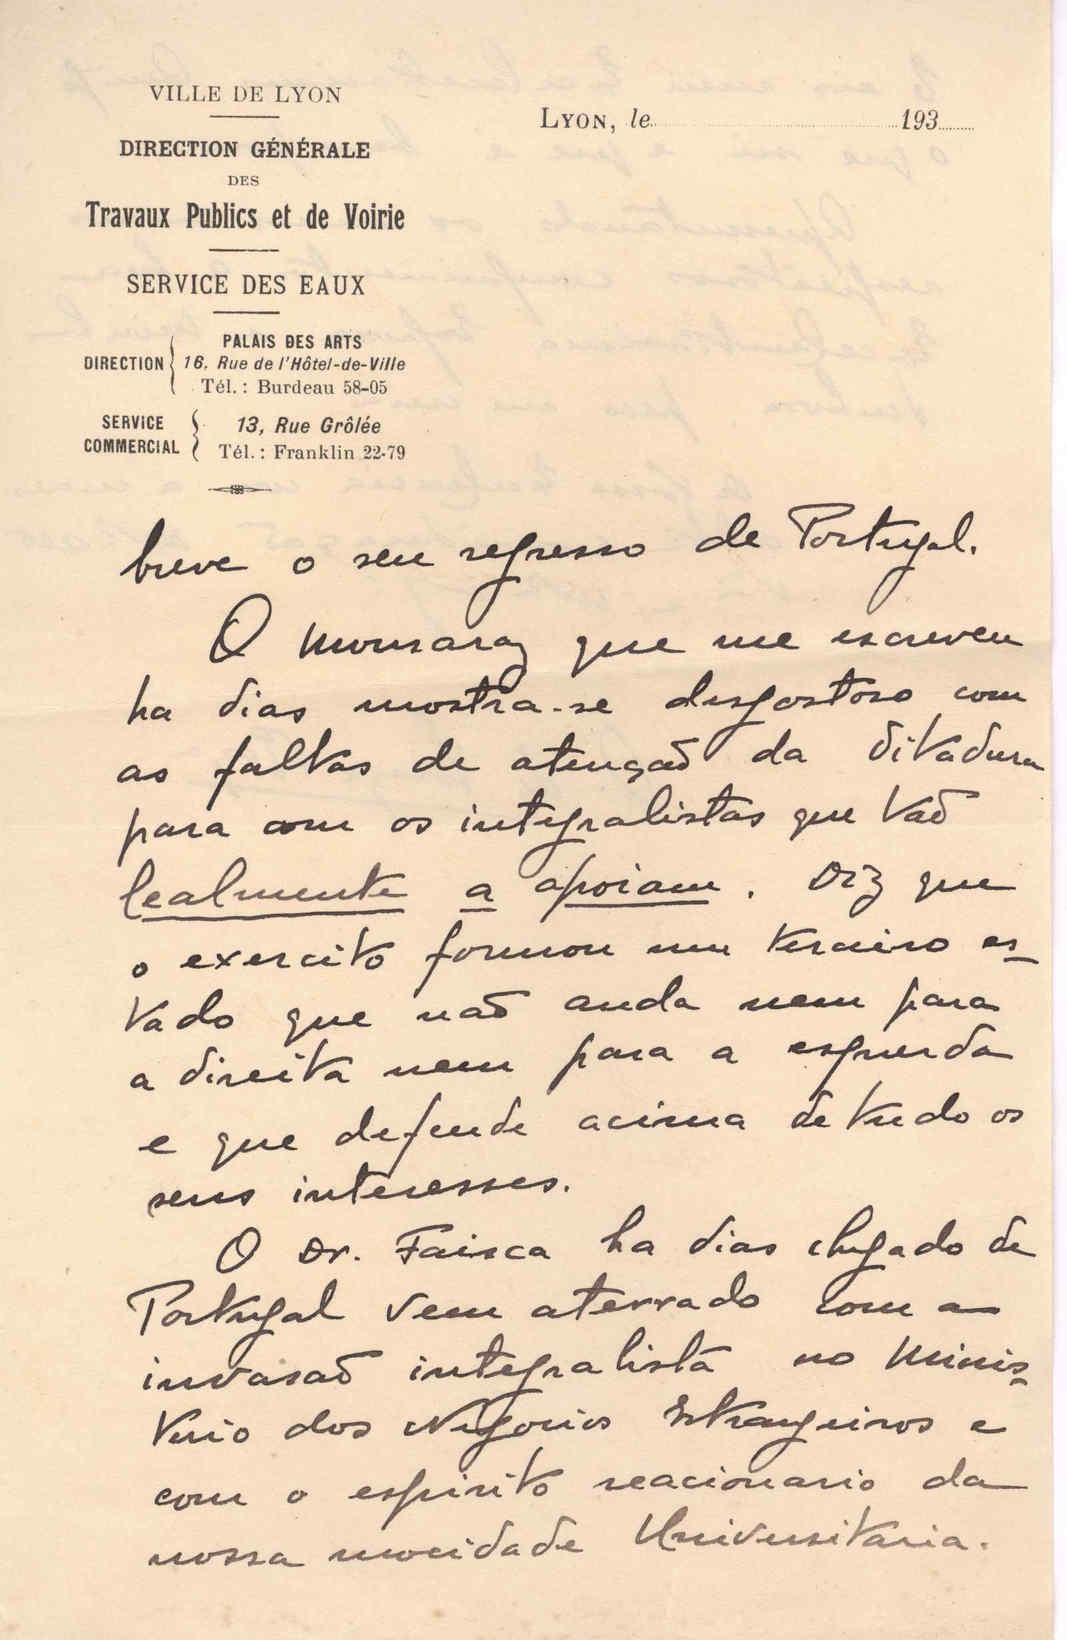 VILLE DE LYON
DIRECTION GÉNÉRALE
DES
Travaux Publics et de Voirie
SERVICE DES EAUX
DIRECTION { PALAIS DES ARTS
16, Rue de l'Hôtel-de-Ville
Tél. : Burdeau 58-05
SERVICE COMMERCIAL { 13, Rue Grôlée
Tél. : Franklin 22-79
LYON, le 193
breve o seu regresso de Portugal.
O Monsaraz que me escreveu
ha dias mostra-se desgostoso com
as faltas de atenção da ditadura
para com os integralistas que tão
lealmente a apoiam. Diz que
o exercito formou um terceiro es-
tado que não anda nem para
a direita nem para a esquerda
e que defende acima de tudo os
seus interesses.
O Dr. Faisca ha dias chegado de
Portugal vem aterrado com a
invasão integralista no Minis-
terio dos Negocios Estrangeiros e
com o espirito reacionario da
nossa mocidade Universitaria.